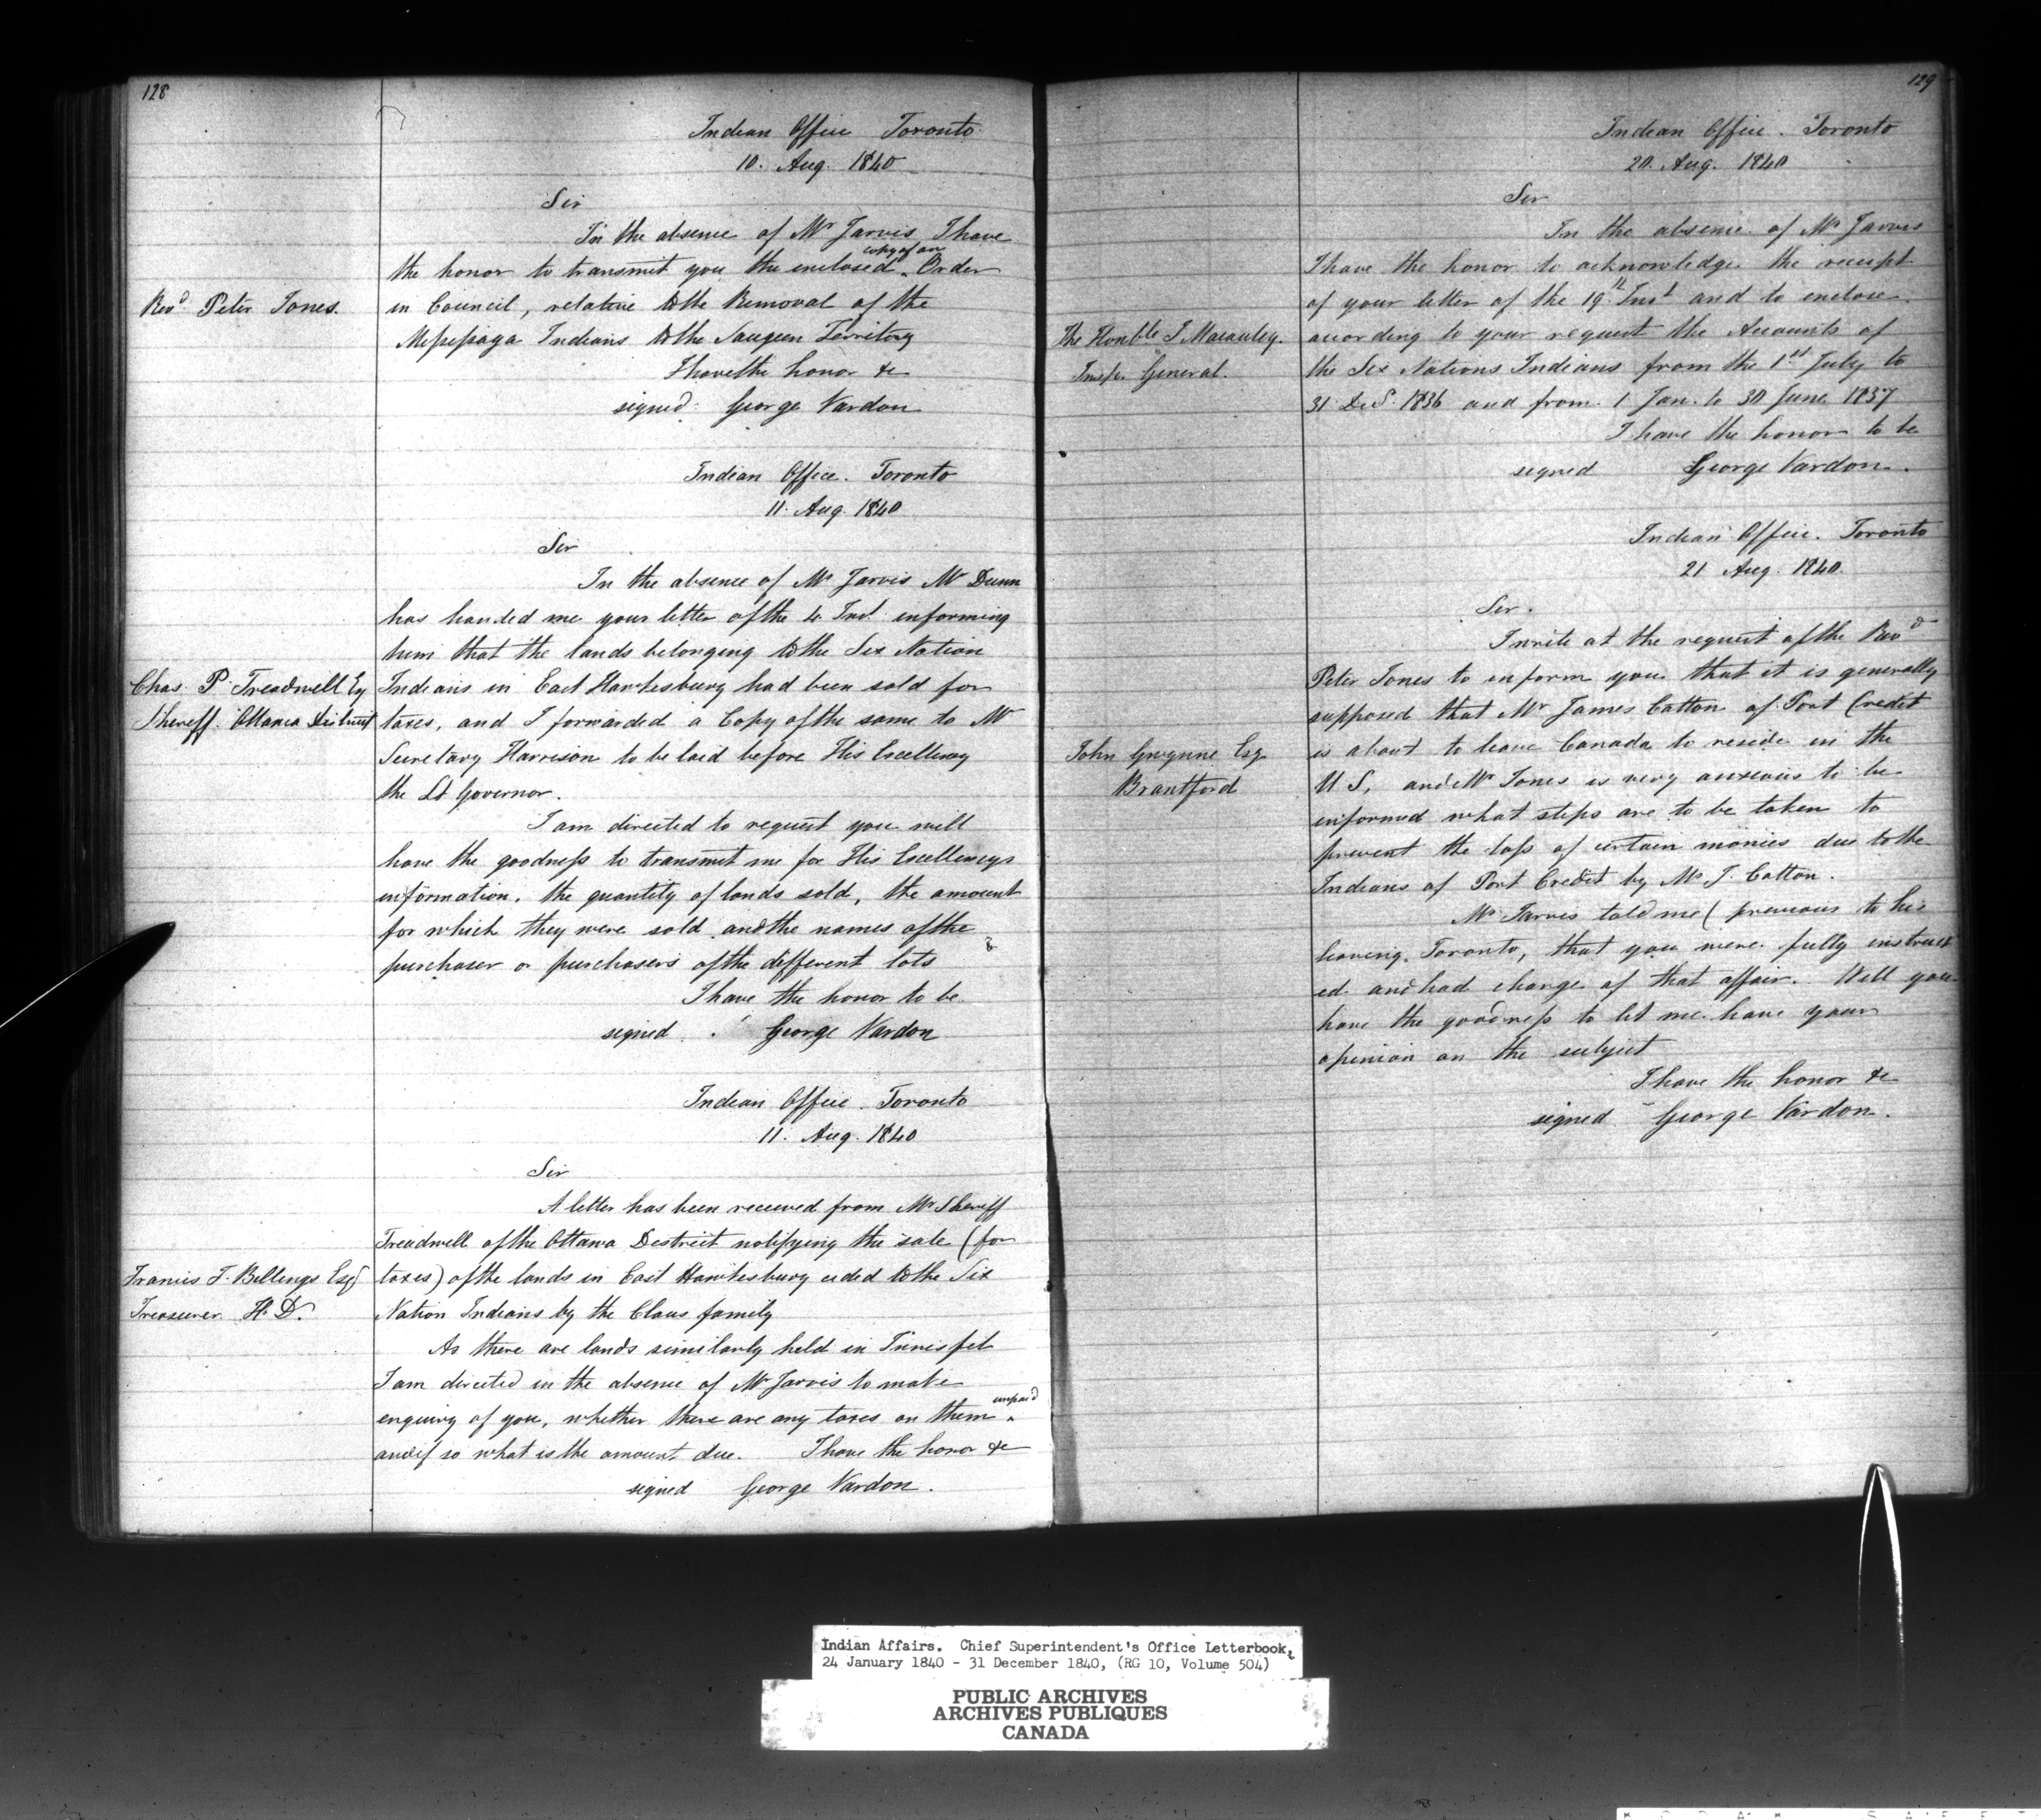 128
Indian Office Toronto
10. Aug. 1840
Sir
In the absence of Mr Jarvis, I have
the honor to transmit you the enclosed copy of an Order
Revd Peter Jones.
in Council, relative to the Removal of the
Missisaga Indians to the Saugeen Territory
I have the honor &c
signed George Vardon
Indian Office. Toronto
11. Aug. 1840
Sir
In the absence of Mr Jarvis Mr Dunn
has handed me your letter of the 4 Inst. informing
him that the lands belonging to the Six Nation
Chas. P. Treadwell Esq
Sheriff. Ottawa District
Indians in East Hawkesbury had been sold for
taxes, and I forwarded a Copy of the same to Mr
Secretary Harrison to be laid before His Excellency
the Lt Governor.
I am directed to request you will
have the goodness to transmit me for His Excellencys
information, the quantity of lands sold, the amount
for which they were sold and the names of the
purchaser or purchasers of the different lots
I have the honor to be
signed George Vardon
Indian Office. Toronto
11. Aug. 1840
Sir
A letter has been received from Mr Sheriff
Treadwell of the Ottawa District notifying the sale (for
Francis T. Billings Esq
Treasurer H. D.
taxes) of the lands in East Hawkesbury ceded to the Six
Nation Indians by the Claus family
As there are lands similarly held in Innisfil
I am directed in the absence of Mr Jarvis to make
enquiry of you, whether there are any taxes on them unpaid
and if so what is the amount due. I have the honor &c
signed George Vardon.
129
Indian Office. Toronto
20. Aug. 1840
Sir
In the absence of Mr Jarvis
I have the honor to acknowledge the receipt
of your letter of the 19th Inst and to enclose
The Honble J. Macauley.
Insp. General.
according to your request the Accounts of
the Six Nations Indians from the 1st July to
31 Dec. 1836 and from 1 Jan. to 30 June 1837
I have the honor to be
signed George Vardon.
Indian Office. Toronto
21 Aug. 1840.
Sir.
I write at the request of the Revd
Peter Jones to inform you that it is generally
supposed that Mr James Cotton of Port Credit
John Gwynne Esq
Brantford
is about to leave Canada to reside in the
U S, and Mr Jones is very anxious to be
informed what steps are to be taken to
prevent the loss of certain monies due to the
Indians of Port Credit by Mr J. Cotton.
Mr Jarvis told me (previous to his
leaving Toronto, that you were fully instruct
ed and had charge of that affair. Will you
have the goodness to let me have your
opinion on the subject
I have the honor &c
signed George Vardon.
Indian Affairs. Chief Superintendent's Office Letterbook,
24 January 1840 - 31 December 1840, (RG 10, Volume 504)
PUBLIC ARCHIVES
ARCHIVES PUBLIQUES
CANADA